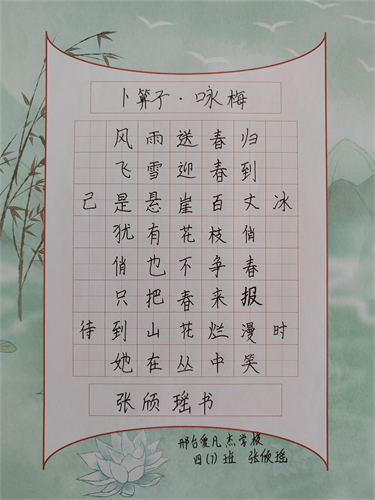 卜算子·咏梅
风雨送春归
飞雪迎春到
已是悬崖百丈冰
犹有花枝俏
俏也不争春
只把春来报
待到山花烂漫时
她在丛中笑
张颀瑶书
邢台爱凡杰学校
四(7)班 张颀瑶